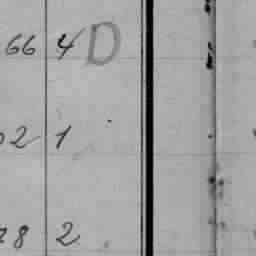 66 4 D
2 1
8 2